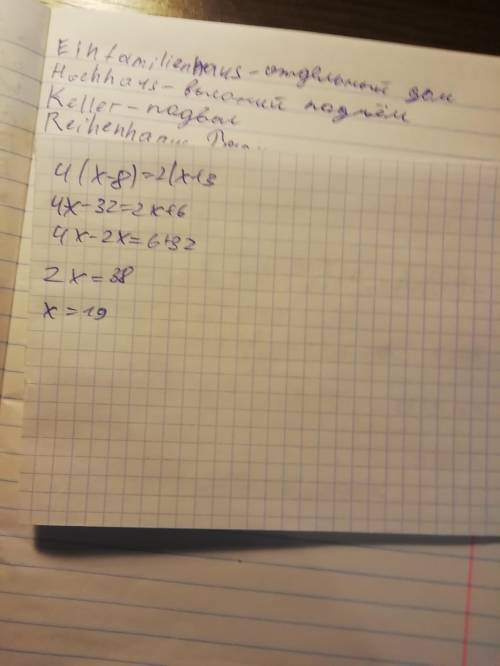 Einfamilienhaus - отдельный дом
Hochhaus - высокий подъём
Keller - подвал
4(x-8)=2(x+3
4x-32=2x+6
4x-2x=6+32
2x=38
x=19